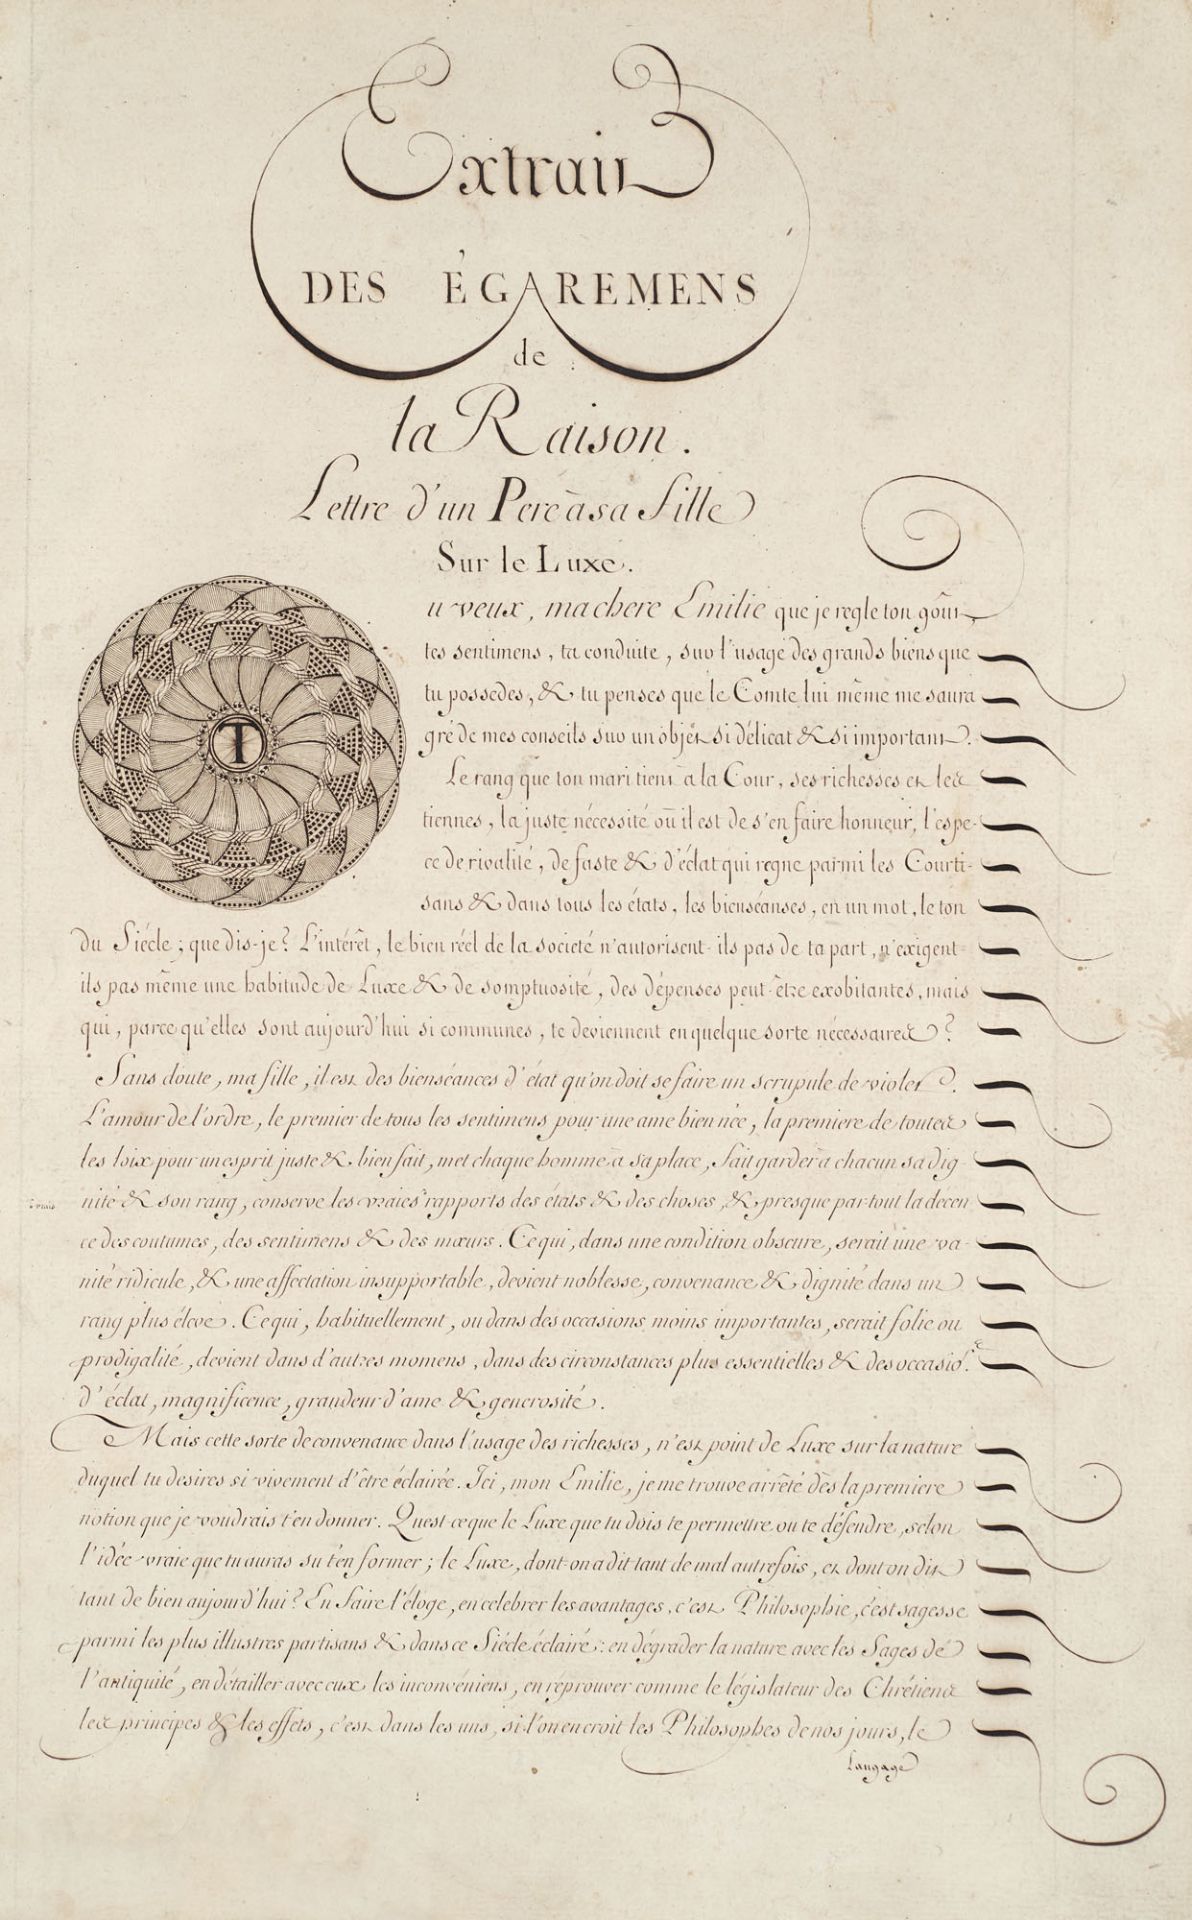 Extrait
DES ÉGAREMENS
de
la Raison.
Lettre d'un Pere à sa fille
Sur le Luxe.
Tu veux, ma chere Emilie que je regle ton goût,
tes sentimens, ta conduite, sur l'usage des grands biens que
tu possedes, & tu penses que le Comte lui même me saura
gré de mes conseils sur un objet si délicat & si important.
Le rang que ton mari tient à la Cour, ses richesses et les
tiennes, la juste nécessité où il est de s'en faire honneur, l'espe-
ce de rivalité, de faste & d'éclat qui regne parmi les Courti-
sans & dans tous les états, les bienséanses, en un mot, le ton
du Siécle; que dis-je? L'intérêt, le bien réel de la societé n'autorisent-ils pas de ta part, n'exigent-
ils pas même une habitude de Luxe & de somptuosité, des dépenses peut-être exobitantes, mais
qui, parce qu'elles sont aujourd'hui si communes, te deviennent en quelque sorte nécessaires?
Sans doute, ma fille, il est des bienséances d'état qu'on doit se faire un scrupule de violer.
L'amour de l'ordre, le premier de tous les sentimens pour une ame bien née, la premiere de toutes
les loix pour un esprit juste & bien fait, met chaque homme à sa place, fait garder à chacun sa dig-
nité & son rang, conserve les vraies rapports des états & des choses, & presque par-tout la decen
ce des coutumes, des sentimens & des mœurs. Ce qui, dans une condition obscure, serait une va-
nité ridicule, & une affectation insupportable, devient noblesse, convenance & dignité dans un
rang plus élevé. Ce qui, habituellement, ou dans des occasions moins importantes, serait folie ou
prodigalité, devient dans d'autres momens, dans des circonstances plus essentielles & des occasio.ˢ
d'éclat, magnificence, grandeur d'ame & generosité.
Mais cette sorte de convenance dans l'usage des richesses, n'est point de Luxe sur la nature
duquel tu desires si vivement d'être éclairée. Ici, mon Emilie, je me trouve arrêté dès la premiere
notion que je voudrais t'en donner. Qu'est-ce que le Luxe que tu dois te permettre ou te défendre, selon
l'idée vraie que tu auras su t'en former; le Luxe, dont on a dit tant de mal autrefois, et dont on dit
tant de bien aujourd'hui? En faire l'éloge, en célebrer les avantages, c'est Philosophie, c'est sagesse
parmi les plus illustres partisans & dans ce Siécle éclairé: en dégrader la nature avec les Sages de
l'antiquité, en détailler avec eux les inconvéniens, en reprouver comme le législateur des Chrétiens
les principes & les effets, c'est dans les uns, si l'on en croit les Philosophes de nos jours, le
Langage